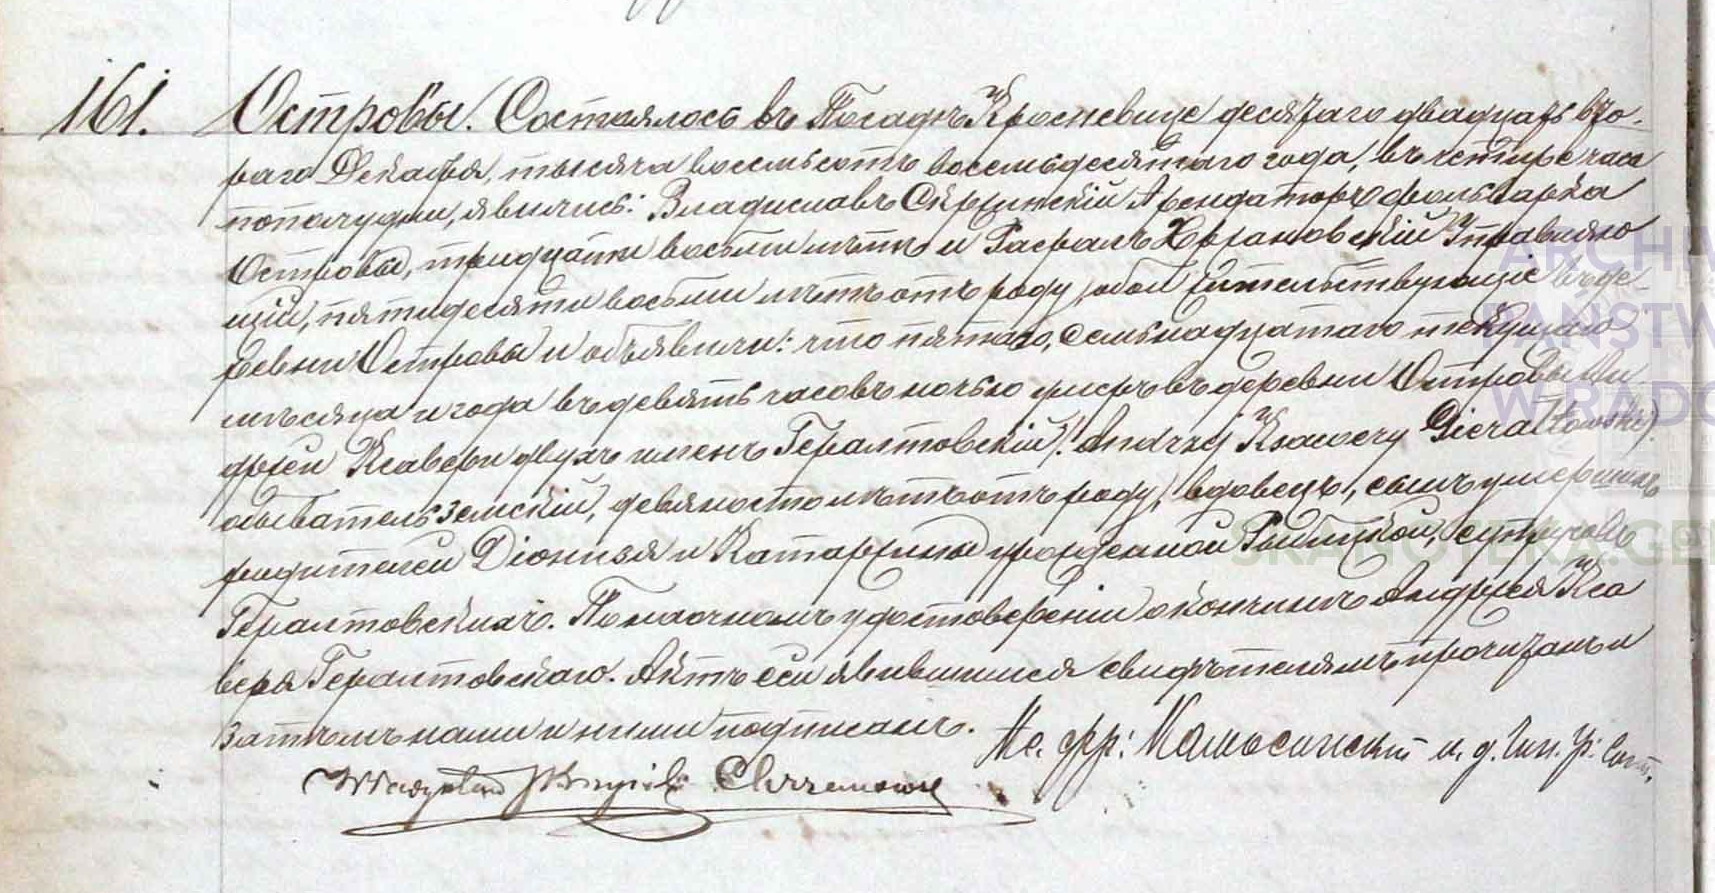 161. Островы. Состоялось въ Посадѣ Кросневице десятаго двадцать вто-
раго Декабря, тысяча восемьсотъ восемьдесятаго года, въ четыре часа
пополудни, явились: Владиславъ Арендаторъ фольварка
Островы, тридцати восьми лѣтъ и Рафалъ Хржановскій Управляю
щій, пятидесяти восьми лѣтъ отъ роду, обои жительствующіе въ де-
ревни Островы и объявили: что пятаго, семьнадцатаго текущаго
мѣсяца и года въ девять часовъ ночью умеръ въ деревни Островы Ан-
држей Ксаверы двухъ именъ Гералтовскій (Andrzej Ksawery Gierałtowski)
обыватель земскій, девяносто лѣтъ отъ роду, вдовецъ, сынъ умершихъ
родителей Діонизія и Катаржины урожденной супруговъ
Гералтовскихъ. По наочномъ удостовереніи о кончинѣ Андржея Кса
верія Гералтовскаго. Актъ сей явившимся свидѣтелямъ прочитанъ и
затѣмъ нами и ними подписанъ.
Władysław Chrzanowski
ARCHIW
PAŃSTW
W RADO
SKANOTEKA.GEN